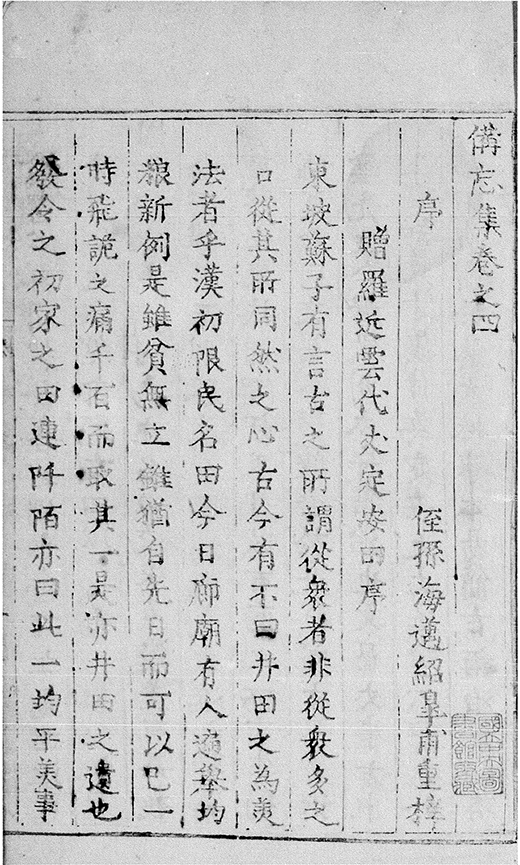 備忘集卷之四
序 侄孫海邁紹皐甫重梓
贈羅近雲代丈定安田序
東坡蘇子有言古之所謂從衆者非從衆多之
口從其所同然之心古今有不曰井田之為美
法者乎漢初限民名田今日廊廟有人適舉均
粮新例是雖貧無立錐猶自先日而可以已一
時飛詭之痛千百而取其一是亦井田之遺也
發令之初家之田連阡陌亦曰此一均平美事
國立中央圖書館收藏